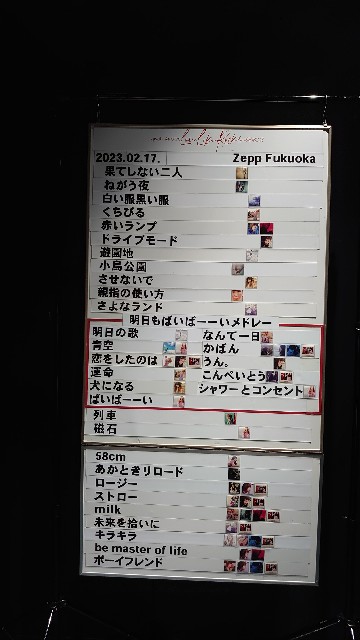 2023.02.17. Zepp Fukuoka
果てしない二人
ねがう夜
白い服黒い服
くちびる
赤いランプ
ドライブモード
遊園地
小鳥公園
させないで
親指の使い方
さよなランド
明日もばいばーーいメドレー
明日の歌
青空
恋をしたのは
運命
犬になる
ばいばーーい
なんて一日
かばん
うん。
こんぺいとう
シャワーとコンセント
列車
磁石
58cm
あかときリロード
ロージー
ストロー
milk
未来を拾いに
キラキラ
be master of life
ボーイフレンド